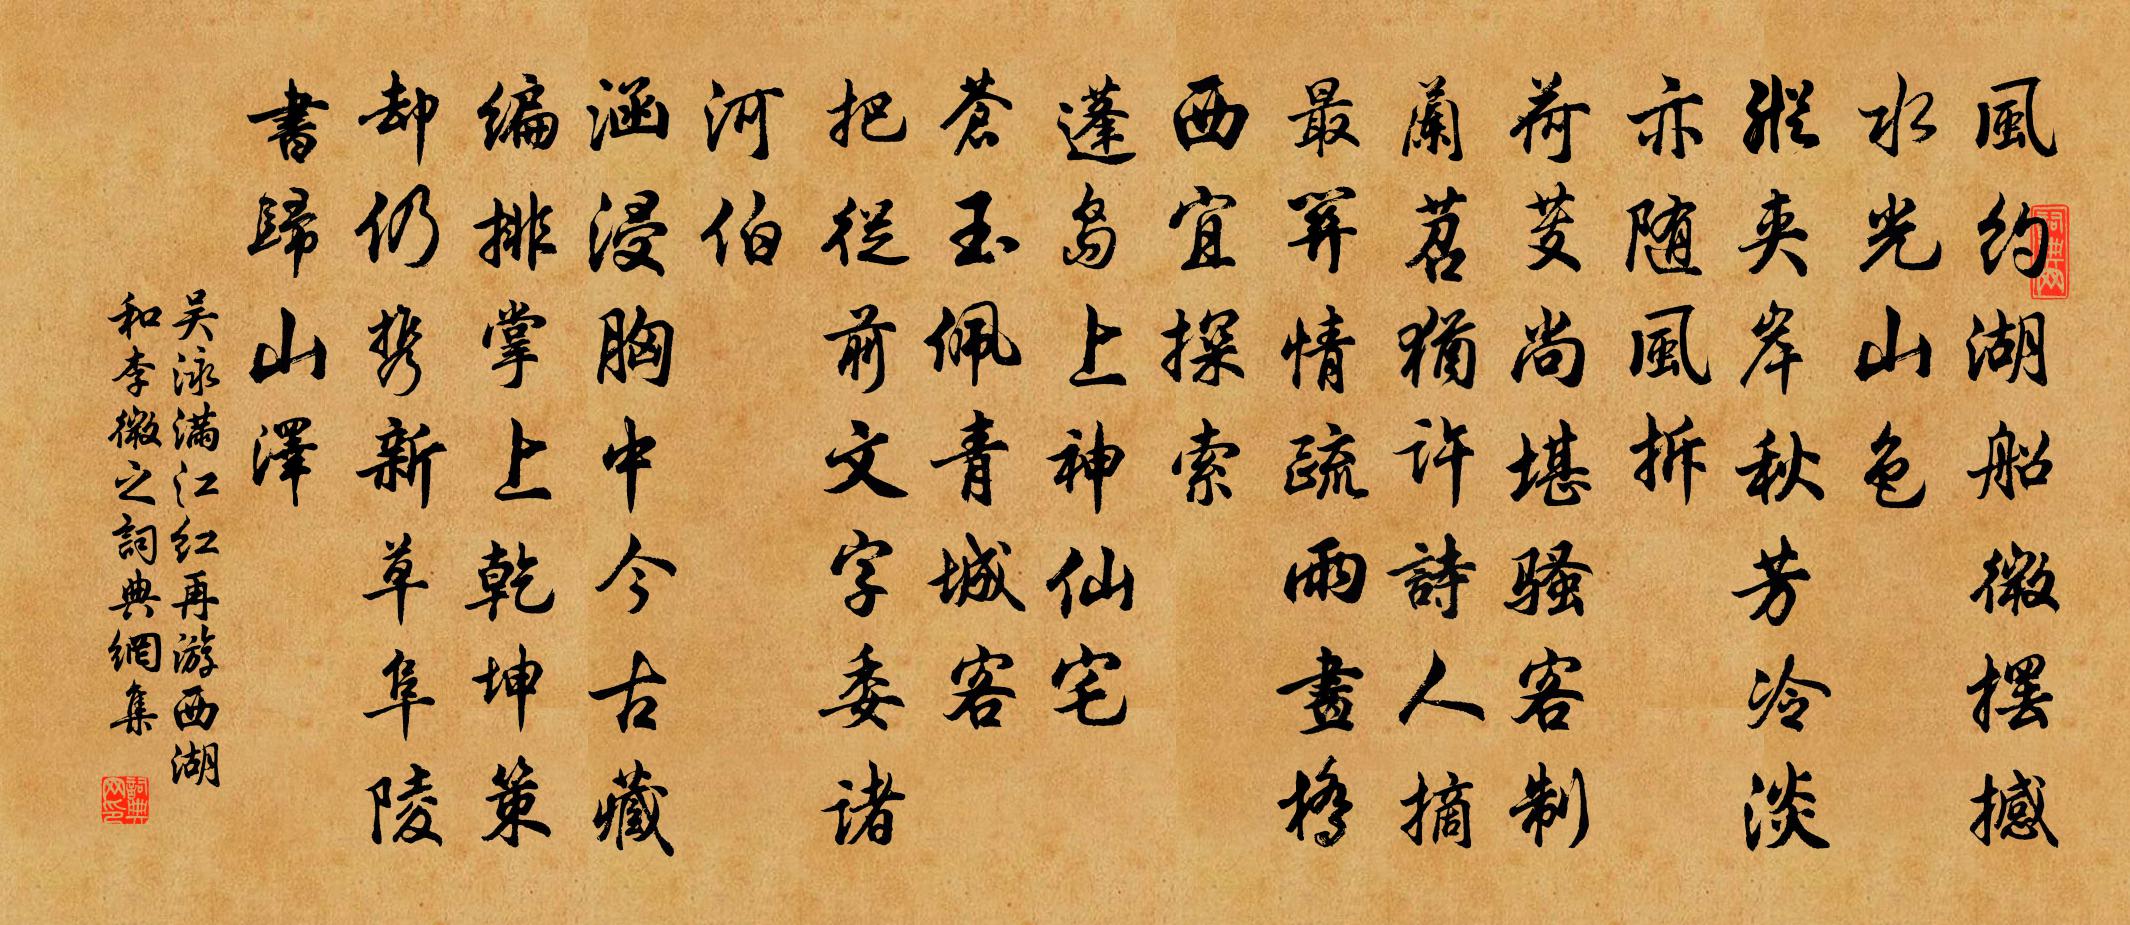 風約湖船微擺撼
水光山色
縱夾岸秋芳冷淡
亦随風拆
荷芰尚堪騷客制
蘭苕猶許詩人摘
最關情疏雨畫橋
西宜探索
蓬島上神仙宅
蒼玉佩青城客
把從前文字委诸
河伯
涵浸胸中今古藏
編排掌上乾坤策
却仍携新草阜陵
書歸山澤
吴泳满江红再游西湖
和李微之詞典網集
詞典网
詞典网印